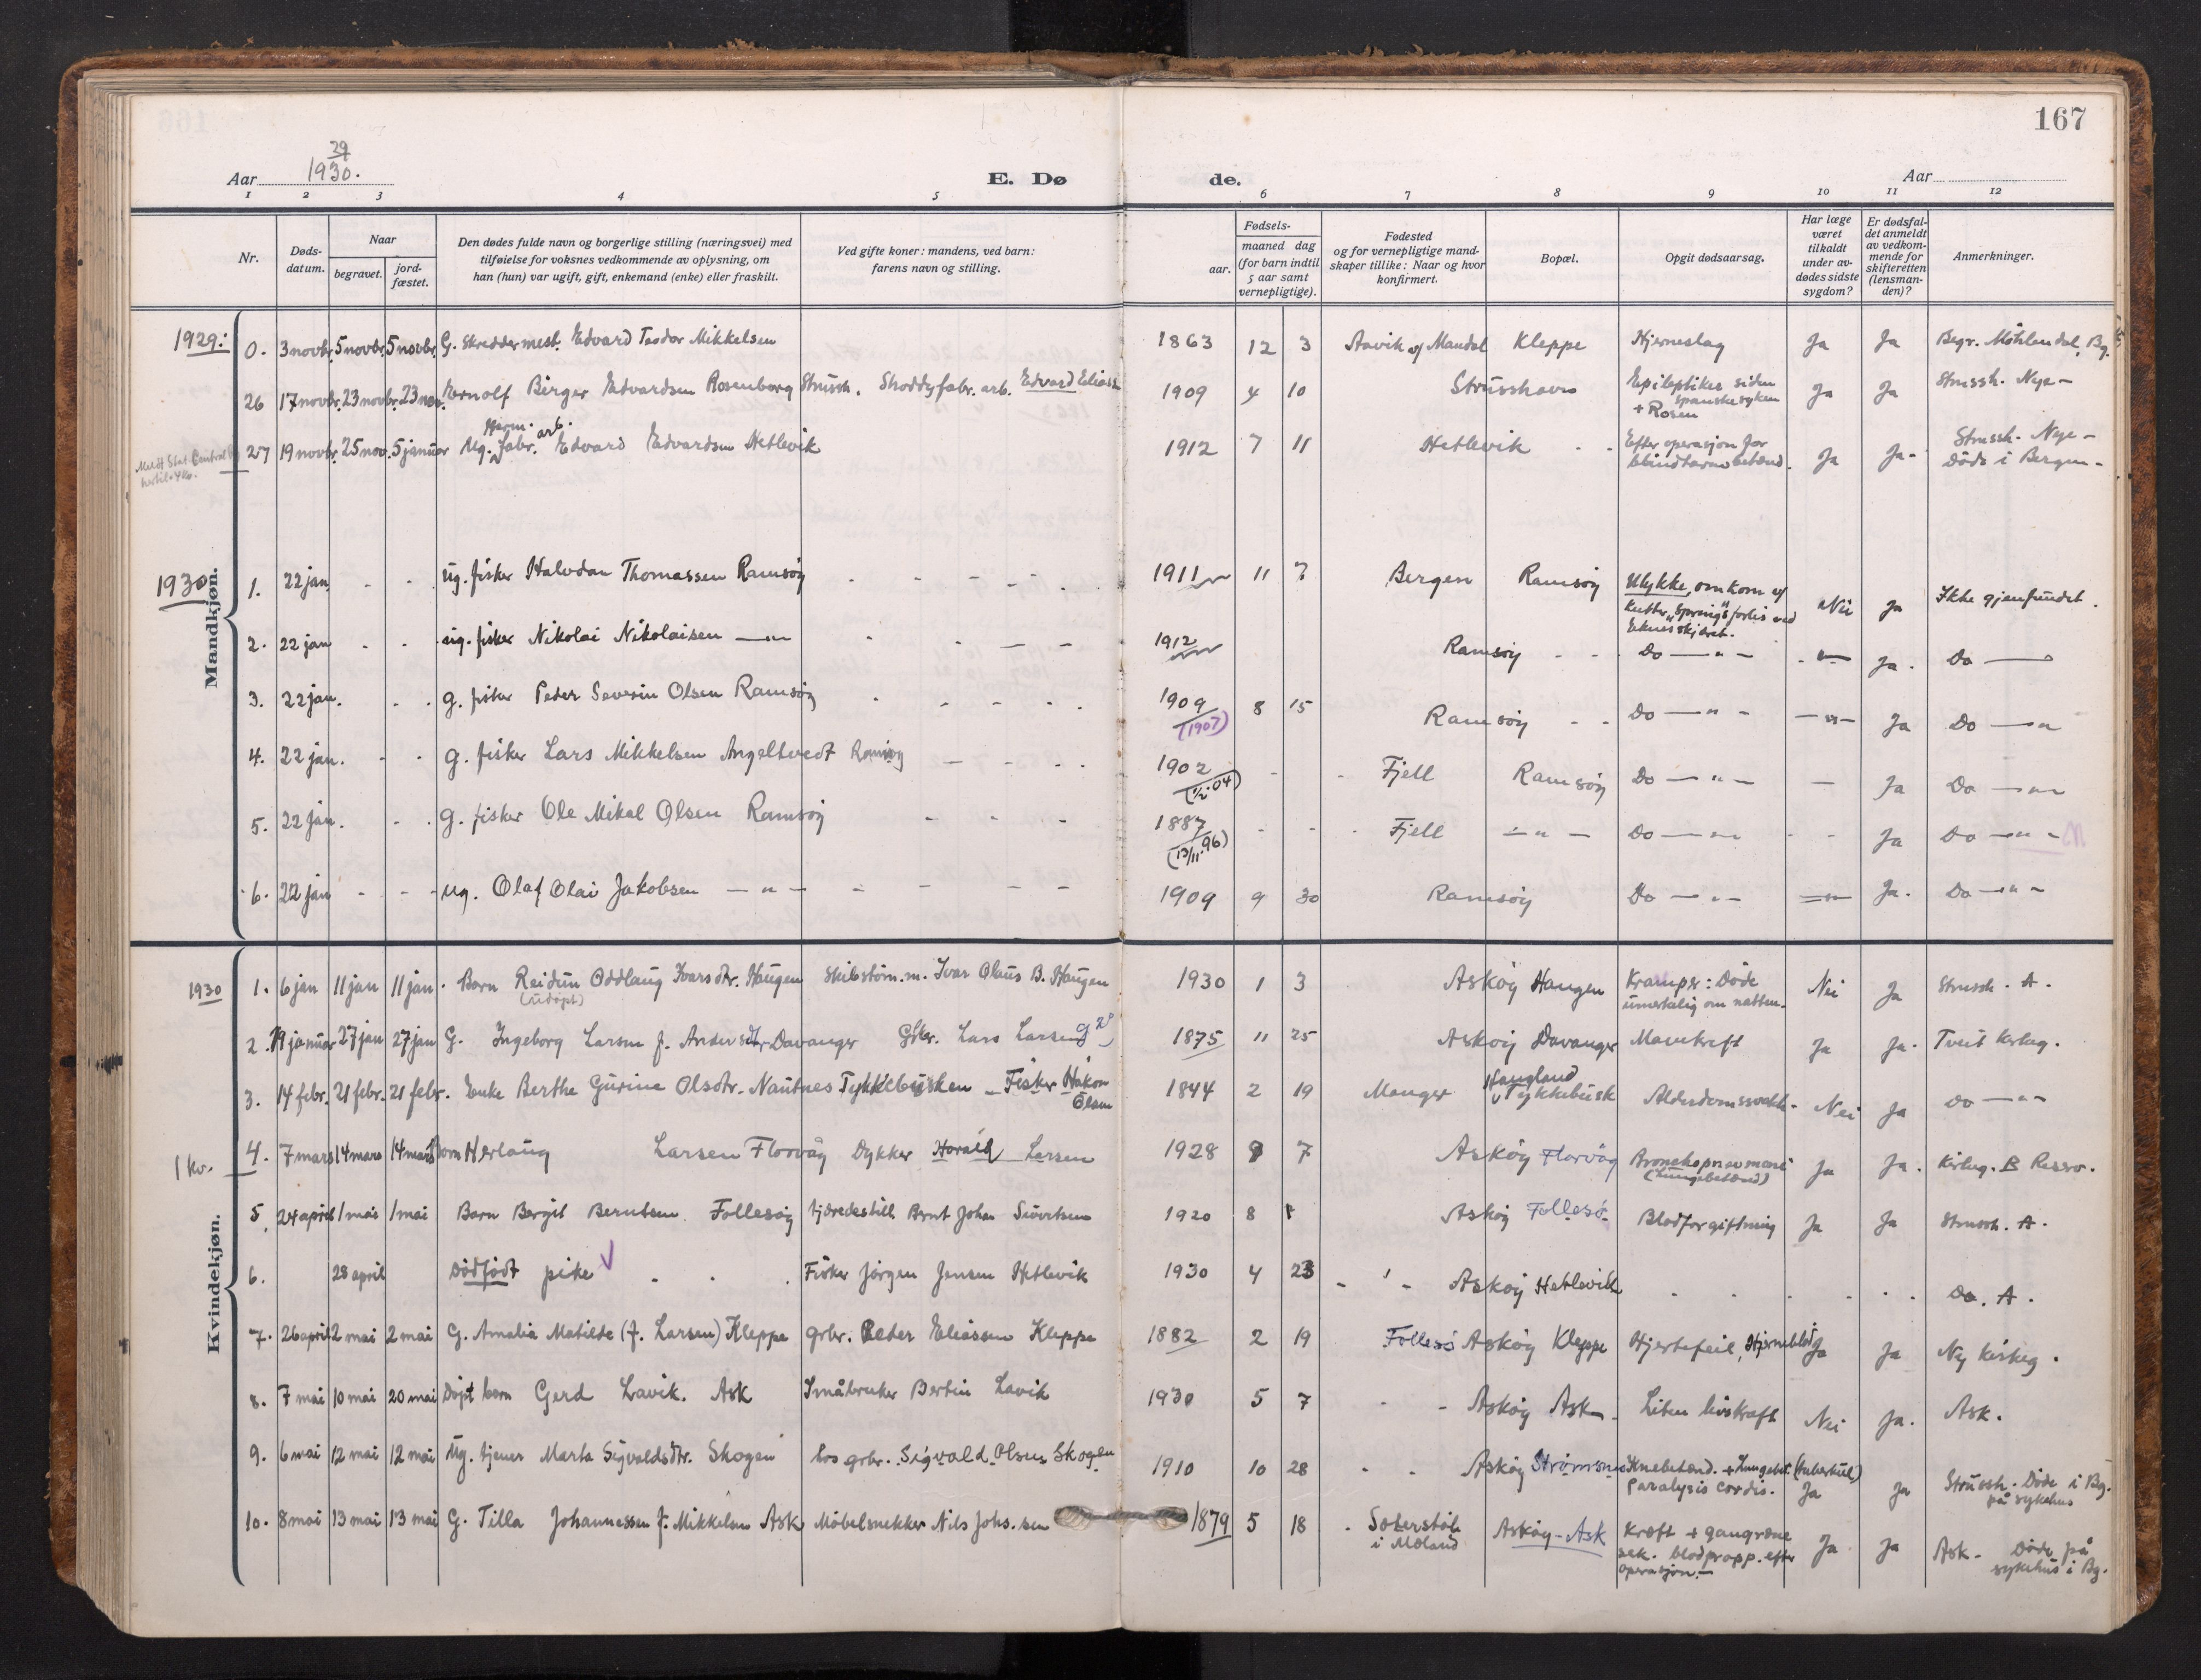 167
29
Aar 1930.
E. Dø
de.
Aar
1 2 3 4 5 6 7 8 9 10 11 12
Nr.
Døds-
datum.
Naar
begravet.
jord-
fæstet.
Den dødes fulde navn og borgerlige stilling (næringsvei) med
tilføielse for voksnes vedkommende av oplysning, om
han (hun) var ugift, gift, enkemand (enke) eller fraskilt.
Ved gifte koner: mandens, ved barn:
farens navn og stilling.
Fødsels-
aar.
maaned dag
(for barn indtil
5 aar samt
vernepligtige).
Fødested
og for vernepligtige mand-
skaper tillike: Naar og hvor
konfirmert.
Bopæl.
Opgit dødsaarsag.
Har læge
været
tilkaldt
under av-
dødes sidste
sygdom?
Er dødsfal-
det anmeldt
av vedkom-
mende for
skifteretten
(lensman-
den)?
Anmerkninger.
Mandkjøn.
1929: 0. 3 novbr. 5 novbr. 5 novbr. G. Skreddermest. Edvard Teodor Mikkelsen 1863 12 3 Aavik af Mandal Kleppe Hjerneslag Ja Ja Begr. Möhlendal, Bg.
26 17 novbr. 23 novbr. 23 nov. Ernolf Birger Edvardsen Rosenborg Strussh. Shoddyfabr. arb. Edvard Eliass. 1909 4 10 Strusshavn Epileptiker siden Ja Ja Strussh. Nye -
spanskesyken
+ Rosen
Herm. arb.
27 19 novbr. 25 nov. 5 januar Ug. fabr. Edvard Edvardsen Hetlevik 1912 7 11 Hetlevik Efter operasjon for Ja Ja - Strussh. Nye -
blindtarmsbetænd. Döde i Bergen -
1930 1. 22 jan. - - ug. fisker Halvdan Thomassen Ramsöy 1911 11 7 Bergen Ramsöy Ulykke, omkom af Nei Ja Ikke gjenfundet.
kutter "Spring"s forlis ved
2. 22 jan - - ug. fisker Nikolai Nikolaisen —"— 1912 Ramsöy Do —"— —"— Ja. Do —
3. 22 jan. - - g. fisker Peder Severin Olsen Ramsöy 1909 8 15 Ramsöy Do —"— —"— Ja Do —"
(1907)
4. 22 jan. - - g. fisker Lars Mikkelsen Angeltvedt Ramsöy 1902 Fjell Ramsöy Do —"— — Ja Do —"—
(1/2.04)
5. 22 jan. - - g. fisker Ole Mikal Olsen Ramsöy 1887 Fjell —"— Do —"— - - Ja Do —"—
(13/11.96)
6. 22 jan - - ug. Olaf Olai Jakobsen —"— 1909 9 30 Ramsöy Do —"— —"— Ja. Do —"—
Kvindekjøn.
1930 1. 6 jan 11 jan 11 jan. Barn Reidun Oddlaug Ivarsdtr. Haugen Skibstöm.m. Ivar Olaus B. Haugen 1930 1 3 Asköy Haugen Kramper: Döde Nei Ja Strussh. A.
(udöpt) umerkelig om natten.
2. 19 januar 27 jan 27 jan G. Ingeborg Larsen f. Andersdtr. Davanger Gbr. Lars Larsen 1875 11 25 Asköy Davanger Mavekreft Ja Ja. Tveit kirkeg.
3. 14 febr. 21 febr. 21 febr. Enke Berthe Gurine Olsdtr. Nautnes Tykkebusken - Fisker Håkon Olsen 1844 2 19 Manger Haugland Tykkebusk Alderdomssvakh. Nei Ja Do —"—
1 kv. 4. 7 mars 14 mars 14 mars Barn Herlaug Larsen Florvåg Dykker Harald Larsen 1928 9 7 Asköy Florvåg Bronchopneumoni Ja Ja. Kirkeg. B Reserv.
(Lungebetænd)
5. 24 april 1 mai 1 mai Barn Bergit Berntsen Follesöy tjæredestill. Bernt Johan Sivertsen 1920 8 Asköy Follesö Blodforgiftning Ja Ja Strussh. A.
6. 28 april Dödfödt pike Fisker Jörgen Jensen Hetlevik 1930 4 23 Asköy Hetlevik Do. A.
7. 26 april 2 mai 2 mai G. Amalia Matilde (f. Larsen) Kleppe grbr. Peder Eliassen Kleppe 1882 2 19 Follesö Asköy Kleppe Hjertefeil, Hjerneblöd Ja Ja Ny kirkeg.
8. 7 mai 10 mai 20 mai Döpt barn Gerd Lavik. Ask Småbruker Bertin Lavik 1930 5 7 Asköy Ask Liten livskraft Nei Ja. Ask.
9. 6 mai 12 mai 12 mai Ug. tjener Marta Sigvaldsdtr. Skogen hos grbr. Sigvald Olsen Skogen 1910 10 28 Asköy Strömsnes Knebetænd. + Lungebet. (tuberkul) Ja Ja Strussh. Döde i Bg.
paralysis cordis. på sykehus
10. 8 mai 13 mai 13 mai G. Tilla Johannessen f. Mikkelsen Ask Möbelsnekker Nils Johs.sen 1879 5 18 Asköy - Ask Kræft + gangræne Ja Ja Ask - Döde på
i Moland sek. blodpropp. efter sykehus i Bg.
operasjon.